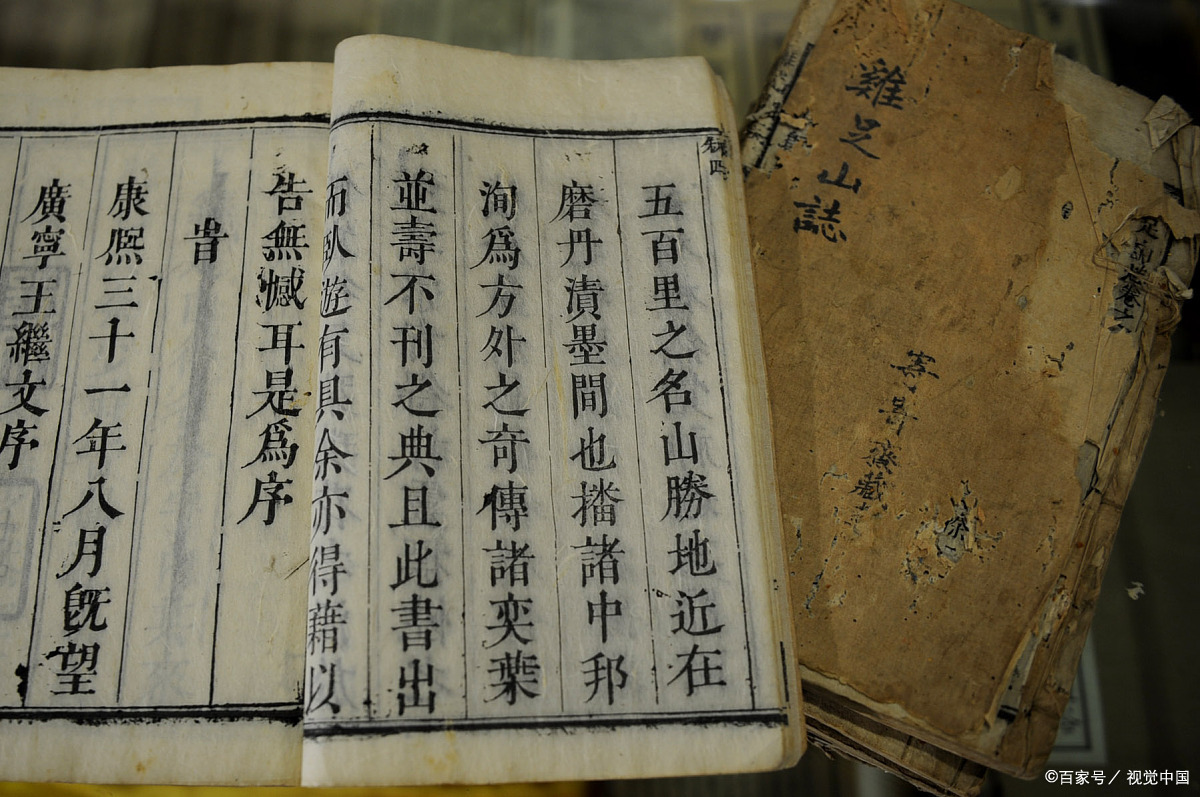 五百里之名山勝地近在
磨丹漬墨間也播諸中邦
洵爲方外之奇傳諸奕葉
並壽不刊之典且此書出
而臥遊有具余亦得藉以
告無憾耳是爲序
旹
康熙三十一年八月旣望
廣寧王繼文序
雞足山誌
齋藏
©百家号／视觉中国